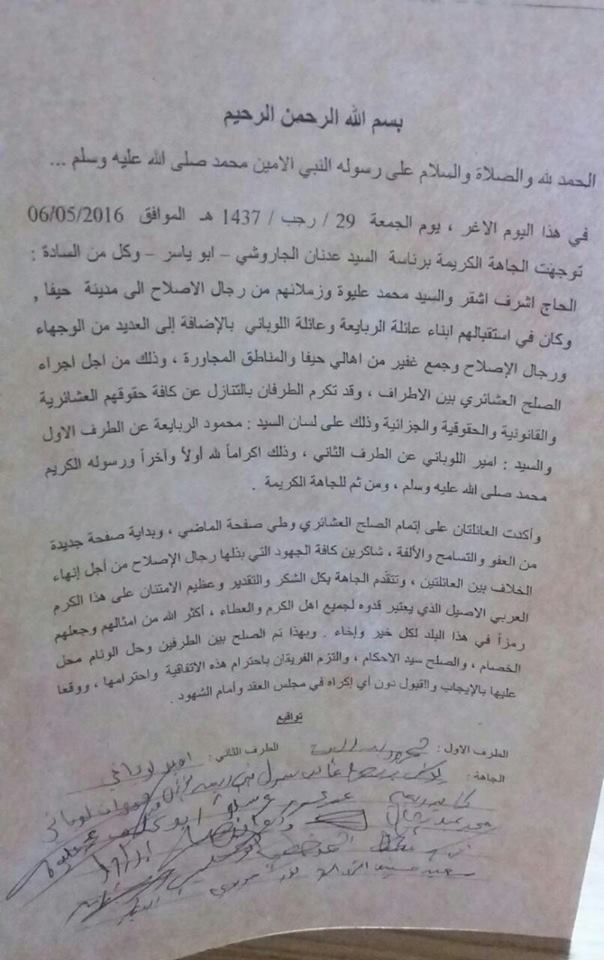 بسم الله الرحمن الرحيم
الحمد لله والصلاة والسلام على رسوله النبي الامين محمد صلى الله عليه وسلم ...
في هذا اليوم الاغر ، يوم الجمعة 29 / رجب / 1437 هـ الموافق 06/05/2016
توجهت الجاهة الكريمة برئاسة السيد عدنان الجاروشي – ابو ياسر – وكل من السادة :
الحاج اشرف اشقر والسيد محمد عليوة وزملائهم من رجال الاصلاح الى مدينة حيفا ,
وكان في استقبالهم ابناء عائلة الربايعة وعائلة اللوباني بالإضافة إلى العديد من الوجهاء
ورجال الإصلاح وجمع غفير من اهالي حيفا والمناطق المجاورة ، وذلك من اجل اجراء
الصلح العشائري بين الاطراف ، وقد تكرم الطرفان بالتنازل عن كافة حقوقهم العشائرية
والقانونية والحقوقية والجزائية وذلك على لسان السيد : محمود الربايعة عن الطرف الاول
والسيد : امير اللوباني عن الطرف الثاني ، وذلك اكراماً لله أولاً وآخراً ورسوله الكريم
محمد صلى الله عليه وسلم ، ومن ثم للجاهة الكريمة .
وأكدت العائلتان على إتمام الصلح العشائري وطي صفحة الماضي ، وبداية صفحة جديدة
من العفو والتسامح والألفة ، شاكرين كافة الجهود التي بذلها رجال الإصلاح من أجل إنهاء
الخلاف بين العائلتين ، وتتقدم الجاهة بكل الشكر والتقدير وعظيم الامتنان على هذا الكرم
العربي الاصيل الذي يعتبر قدوه لجميع اهل الكرم والعطاء ، أكثر الله من امثالهم وجعلهم
رمزاً في هذا البلد لكل خير وإخاء . وبهذا تم الصلح بين الطرفين وحل الوئام محل
الخصام ، والصلح سيد الاحكام ، والتزم الفريقان باحترام هذه الاتفاقية واحترامها ، ووقعا
عليها بالإيجاب والقبول دون أي إكراه في مجلس العقد وأمام الشهود .
تواقيع
الطرف الاول : الطرف الثاني : امير لوباني
الجاهة :